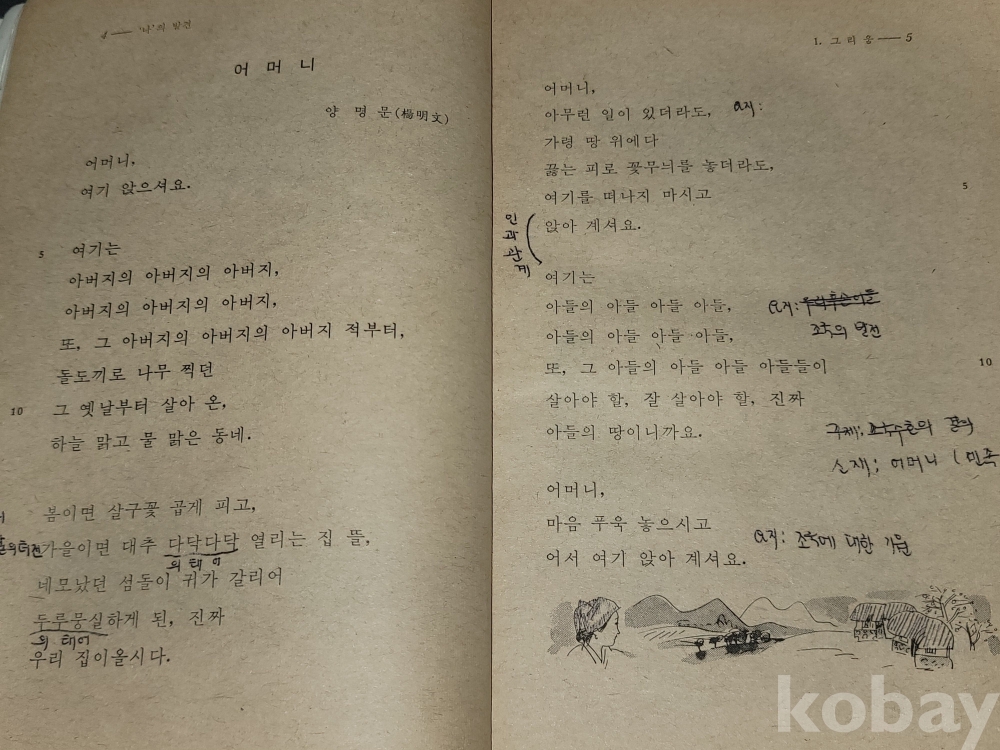 4 — '나'의 발견
어 머 니
양 명 문(楊明文)
어머니,
여기 앉으셔요.
5 여기는
아버지의 아버지의 아버지,
아버지의 아버지의 아버지,
또, 그 아버지의 아버지의 아버지 적부터,
돌도끼로 나무 찍던
10 그 옛날부터 살아 온,
하늘 맑고 물 맑은 동네.
봄이면 살구꽃 곱게 피고,
가을이면 대추 다닥다닥 열리는 집 뜰,
의태어
네모났던 섬돌이 귀가 갈리어
두루뭉실하게 된, 진짜
의태어
우리 집이올시다.
1. 그리움 — 5
어머니,
아무런 일이 있더라도,
가령 땅 위에다
끓는 피로 꽃무늬를 놓더라도,
여기를 떠나지 마시고 5
앉아 계셔요.
인과관계
여기는
아들의 아들 아들 아들,
아들의 아들 아들 아들,
조국의 발전
또, 그 아들의 아들 아들 아들들이 10
살아야 할, 잘 살아야 할, 진짜
아들의 땅이니까요.
주제: 조국수호의 결의
소재; 어머니 (민족
어머니,
마음 푸욱 놓으시고
요지: 조국에 대한 기원
어서 여기 앉아 계셔요.
kobay